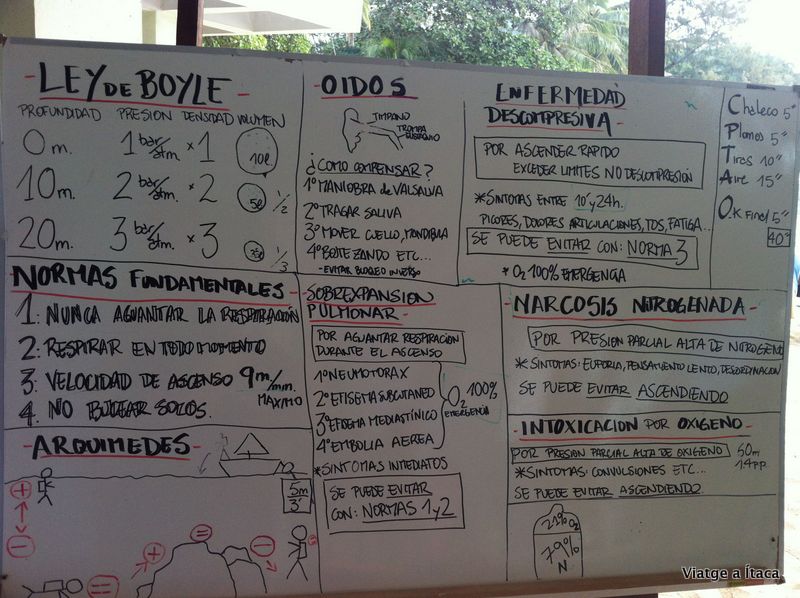 - LEY DE BOYLE -
PROFUNDIDAD PRESION DENSIDAD VOLUMEN
0m. 1 bar/atm. x 1 10l
10m. 2 bar/atm. x 2 5l 1/2
20m. 3 bar/atm. x 3 1/3
- OIDOS -
TIMPANO
TROMPA
EUSTAQUIO
¿COMO COMPENSAR?
1º MANIOBRA de VALSALVA
2º TRAGAR SALIVA
3º MOVER CUELLO, MANDIBULA
4º BOSTEZANDO ETC...
- EVITAR BLOQEO INVERSO
ENFERMEDAD
DESCOMPRESIVA -
POR ASCENDER RAPIDO
EXCEDER LIMITES NO DESCOMPRESIÓN
*SINTOMAS ENTRE 10' y 24h.
PICORES, DOLORES ARTICULACIONES, TOS, FATIGA...
SE PUEDE EVITAR CON: NORMA 3
* O2 100% EMERGENCIA
Chaleco 5"
Plomos 5"
Tiras 10"
Aire 15"
O.K Final 5"
40"
- NORMAS FUNDAMENTALES -
1: NUNCA AGUANTAR LA RESPIRACIÓN
2: RESPIRAR EN TODO MOMENTO
3: VELOCIDAD DE ASCENSO 9m/min.
MAXIMO
4. NO BUCEAR SOLOS.
- SOBREXPANSION
PULMONAR -
POR AGUANTAR RESPIRACION
DURANTE EL ASCENSO
1º NEUMOTORAX
2º EFISEMA SUBCUTANEO
3º EFISEMA MEDIASTÍNICO
4º EMBOLIA AEREA
O2 100%
EMERGENCIA
*SINTOMAS INMEDIATOS
SE PUEDE EVITAR
CON: NORMAS 1 y 2
- NARCOSIS NITROGENADA -
POR PRESION PARCIAL ALTA DE NITROGENO
*SINTOMAS: EUFORIA, PENSAMIENTO LENTO, DESCORDINACION
SE PUEDE EVITAR ASCENDIENDO
- INTOXICACION POR OXIGENO -
POR PRESION PARCIAL ALTA DE OXIGENO 50m
1'4 pp.
*SINTOMAS: CONVULSIONES ETC...
SE PUEDE EVITAR ASCENDIENDO.
21% O2
79%
N
- ARQUIMEDES -
5m
3'
+
-
=
+
=
-
Viatge a Ítaca